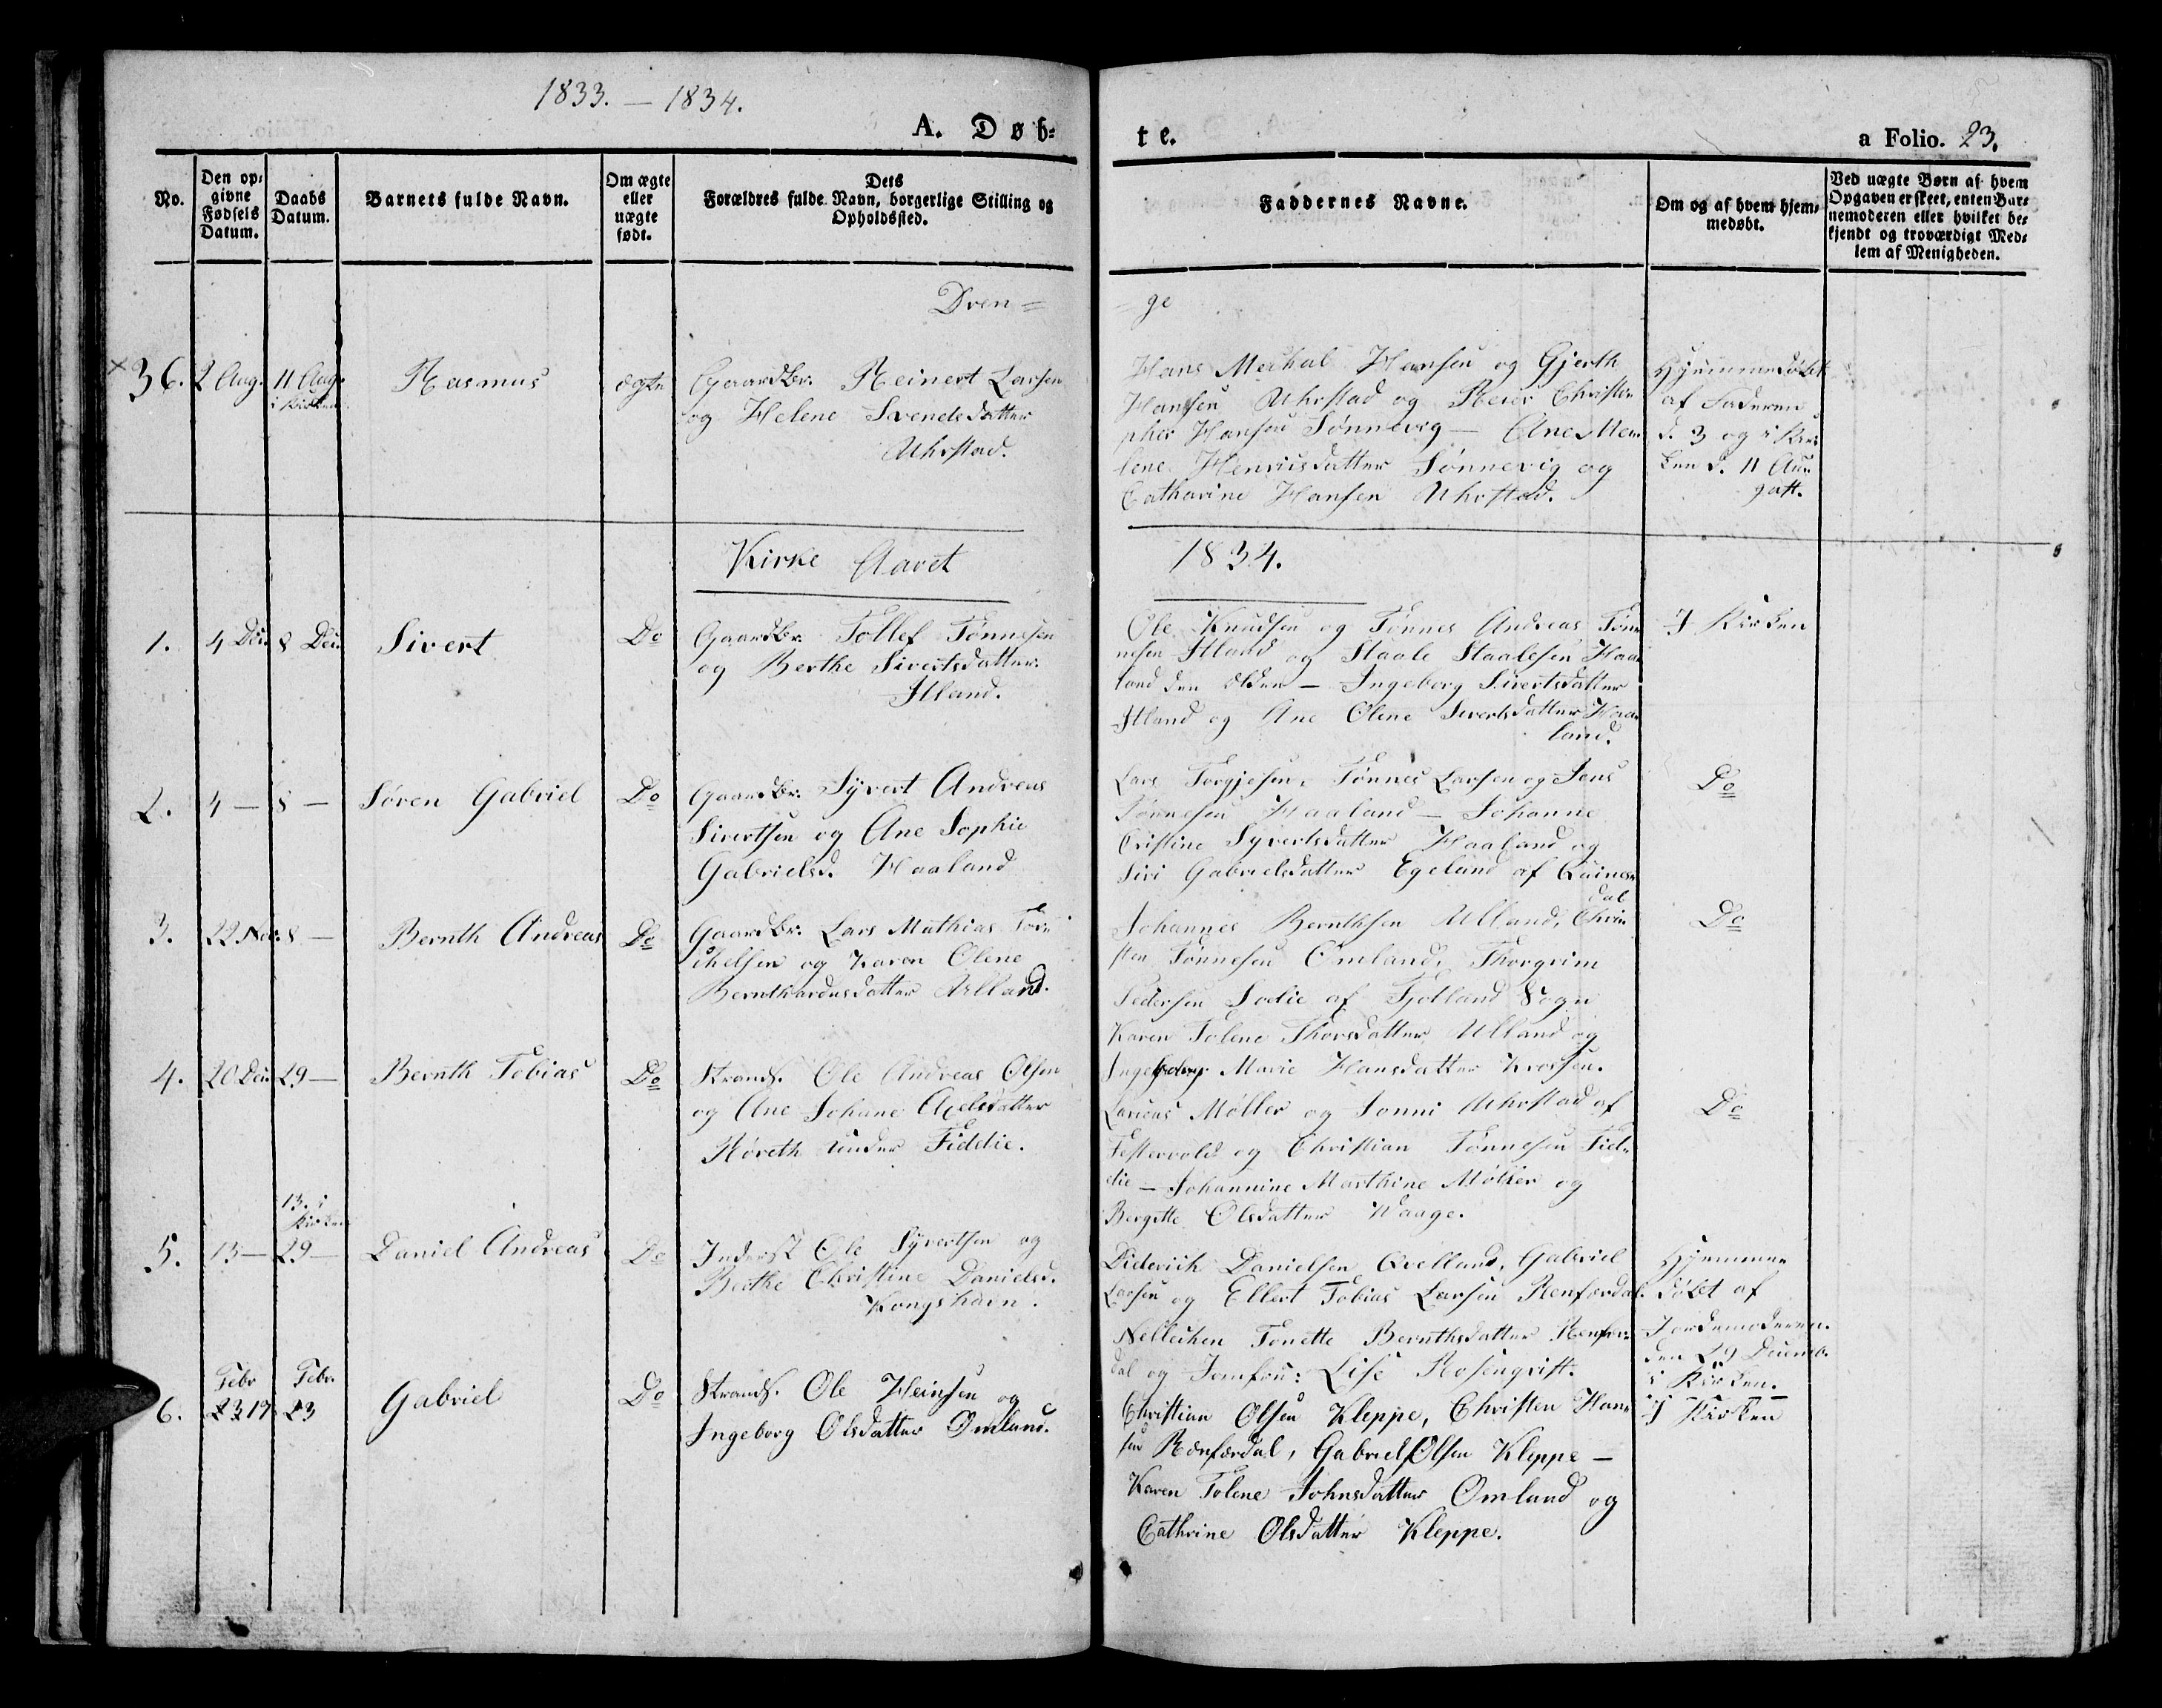 1833. — 1834.
A. Døb-
te.
a Folio. 23.
No.
Den op-
givne
Fødsels
Datum.
Daabs
Datum.
Barnets fulde Navn.
Om ægte
eller
uægte
født.
Dets
Forældres fulde Navn, borgerlige Stilling og
Opholdssted.
Faddernes Navne.
Om og af hvem hjem-
medøbt.
Ved uægte Børn af hvem
Opgaven er skeet, enten Bar-
nemoderen eller hvilket be-
kjendt og troværdigt Med-
lem af Menigheden.
Dren=
=ge
36.
2 Aug.
11 Aug.
i Kirken
Rasmus
ægte
Gaardbr. Reinert Larsen
og Helene Svendsdatter
Uhrstad.
Hans Meckal Hansen og Gjerth
Hansen Uhrstad og Reier Christo
pher Hansen Sønnevig — Ane Ma
lene Henriksdatter Sønnevig og
Catharine Hansen Uhrstad.
Hjemmedøbt
af Faderen
d. 3 og i Kir-
ken d. 11 Au-
gust.
Kirke Aaret
1834.
1.
4 Dec.
8 Dec.
Sivert
Do
Gaardbr. Tollef Tønnesen
og Berthe Sivertsdatter
Itland.
Ole Knudsen og Tønnes Andreas Tøn-
nesen Itland og Staale Staalesen Haa-
land den ælder — Ingeborg Sivertsdatter
Itland og Ane Olene Sivertsdatter Haa-
land.
I Kirken
2.
4 —
8 —
Søren Gabriel
Do
Gaardbr. Syvert Andreas
Sivertsen og Ane Sophie
Gabrielsd. Haaland
Lars Torgjesen, Tønnes Larsen og Jens
Tønnesen Haaland — Johanne
Cristine Syvertsdatter Haaland og
Siri Gabrielsdatter Egeland af Quines-
dal
Do
3.
22 Nov.
8 —
Bernth Andreas
Do
Gaardbr. Lars Mathias Tor-
kelsen og Karen Olene
Bernthardusdatter Ulland.
Johannes Bernthsen Ulland, Chri-
sten Tønnesen Omland, Thorgrim
Pedersen Lodie af Fjotland Sogn
Karen Tolene Thorsdatter Ulland og
Ingeborg Marie Hansdatter Krossen.
Do
4.
20 Dec.
29 —
Bernth Tobias
Do
Strands. Ole Andreas Olsen
og Ane Johane Axelsdatter
Røreth under Fiddie.
Laricus Møller og Jonni Uhrstad af
Festervold og Christian Tønnesen Fid-
die — Johannine Marthine Møller og
Bergitte Olsdatter Waage.
Do
5.
13 —
13. i
Kirken
29 —
Daniel Andreas
Do
Inderst Ole Syvertsen og
Berthe Christine Danielsd.
Kongshavn.
Diderich Danielsen Qvelland, Gabriel
Larsen og Ellert Tobias Larsen Renfærdal.
Nellichen Tonette Bernthsdatter Renfær-
dal og Jomfru: Lise Rosenqvist.
Hjemme
døbt af
Jordemoderen.
den 29 Decemb.
i Kirken.
6.
Febr
23 19
Febr.
23
Gabriel
Do
Strands. Ole Heinsen og
Ingeborg Olsdatter Omland.
Christian Olsen Kleppe, Christen Han-
sen Renfærdal, Gabriel Olsen Kleppe —
Karen Tolene Johnsdatter Omland og
Cathrine Olsdatter Kleppe.
I Kirken